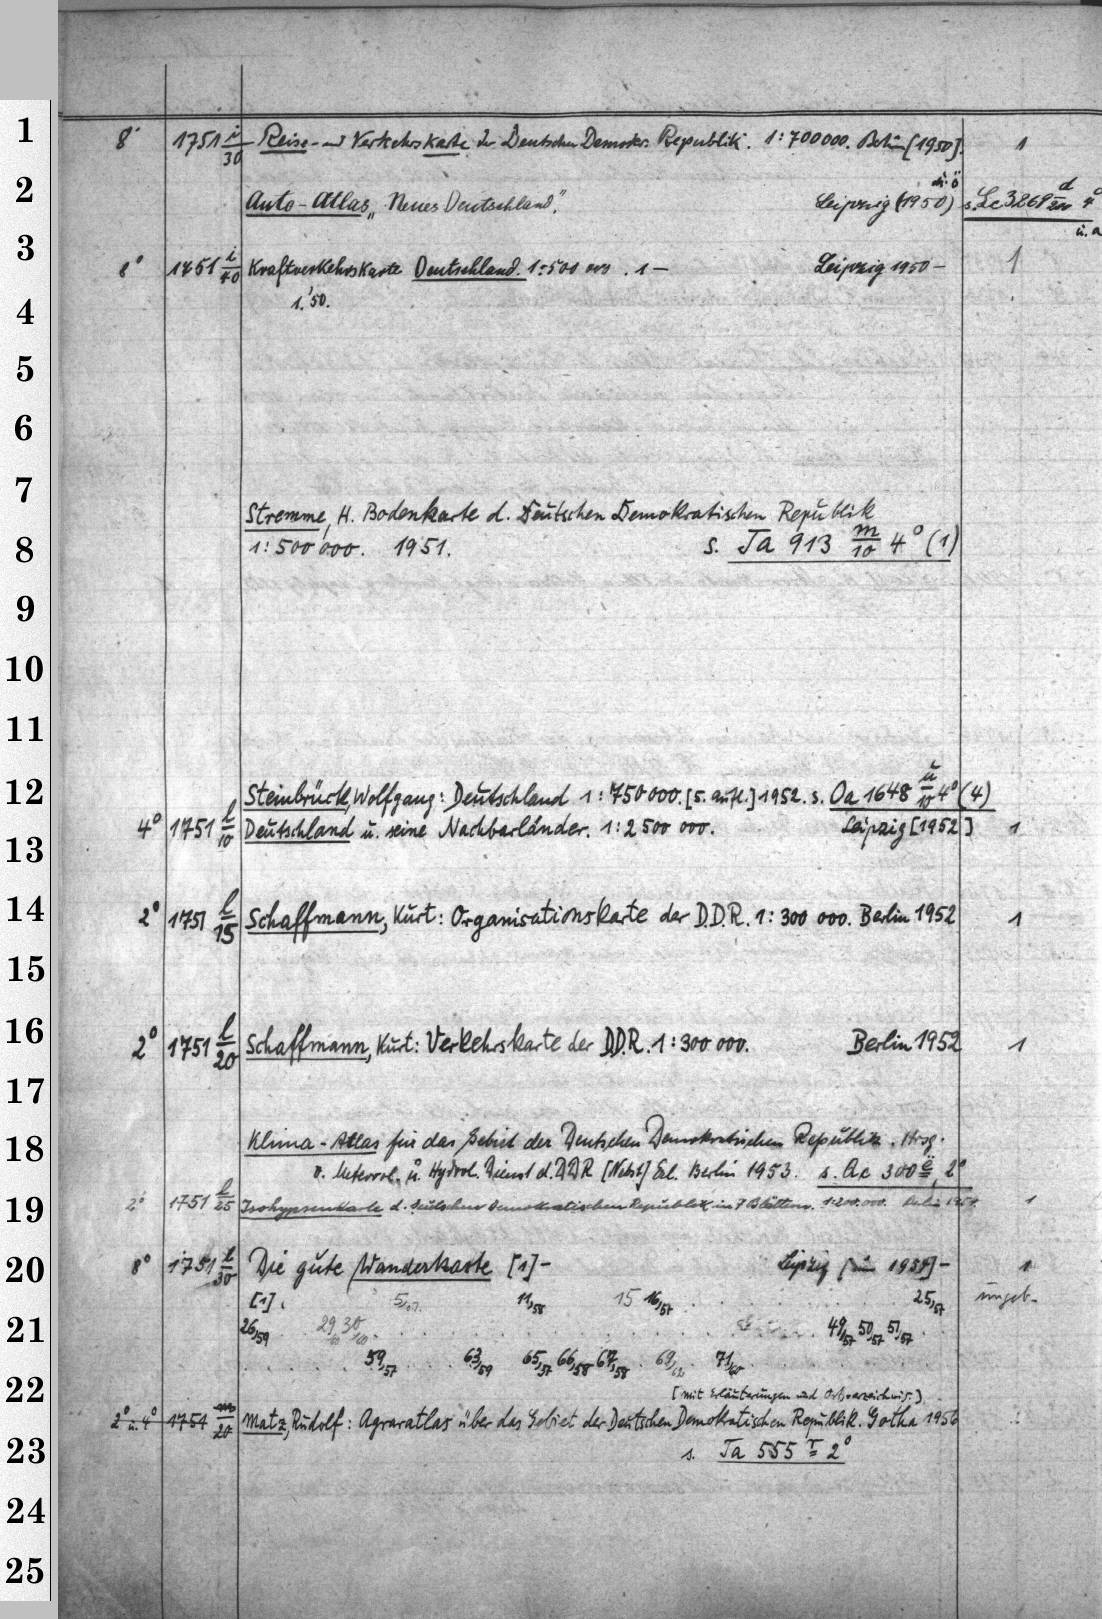 1
8° 1751 i/30 Reise- und Verkehrskarte der Deutschen Demokr. Republik. 1:700000. Berlin [1950]. 1
2
Auto-Atlas „Neues Deutschland". Leipzig (1950) s. Lc 3269 d 4°
u. a
3
8° 1751 i/40 Kraftverkehrskarte Deutschland. 1:500 000. 1— Leipzig 1950— 1
4
1.'50.
5
6
7
Stremme, H. Bodenkarte d. Deutschen Demokratischen Republik
8
1:500 000. 1951. s. Ja 913 m/10 4° (1)
9
10
11
12
Steinbrück, Wolfgang: Deutschland 1:750 000. [5. Aufl.] 1952. s. Oa 1648 u/10 4° (4)
4° 1751 l/10 Deutschland u. seine Nachbarländer. 1:2 500 000. Leipzig [1952] 1
13
14
2° 1751 l/15 Schaffmann, Kurt: Organisationskarte der D.D.R. 1:300 000. Berlin 1952 1
15
16
2° 1751 l/20 Schaffmann, Kurt: Verkehrskarte der D.D.R. 1:300 000. Berlin 1952 1
17
18
Klima-Atlas für das Gebiet der Deutschen Demokratischen Republik. Hrsg.
v. Meteorol. u. Hydrol. Dienst d. DDR [Nebst] Erl. Berlin 1953. s. Ac 300 2°
19
2° 1751 l/25 Isohypsenkarte d. Deutschen Demokratischen Republik in 7 Blättern. 1:200.000. Berlin 1954. 1
20
8° 1751 l/30 Die gute Wanderkarte [1]— Leipzig [ 1954]— 1
[1]. 5, 11,58 15 16,57 25,57 ungeb.
21
26,59 29 30 49,57 50,57 51,57
59,57 63,59 65,57 66,58 67,58 69 71,60
22
[mit Erläuterungen und Ortsverzeichnis.]
2° u. 4° 1751 m/20 Matz, Rudolf: Agraratlas über das Gebiet der Deutschen Demokratischen Republik. Gotha 1956
23
s. Ja 555 r 2°
24
25